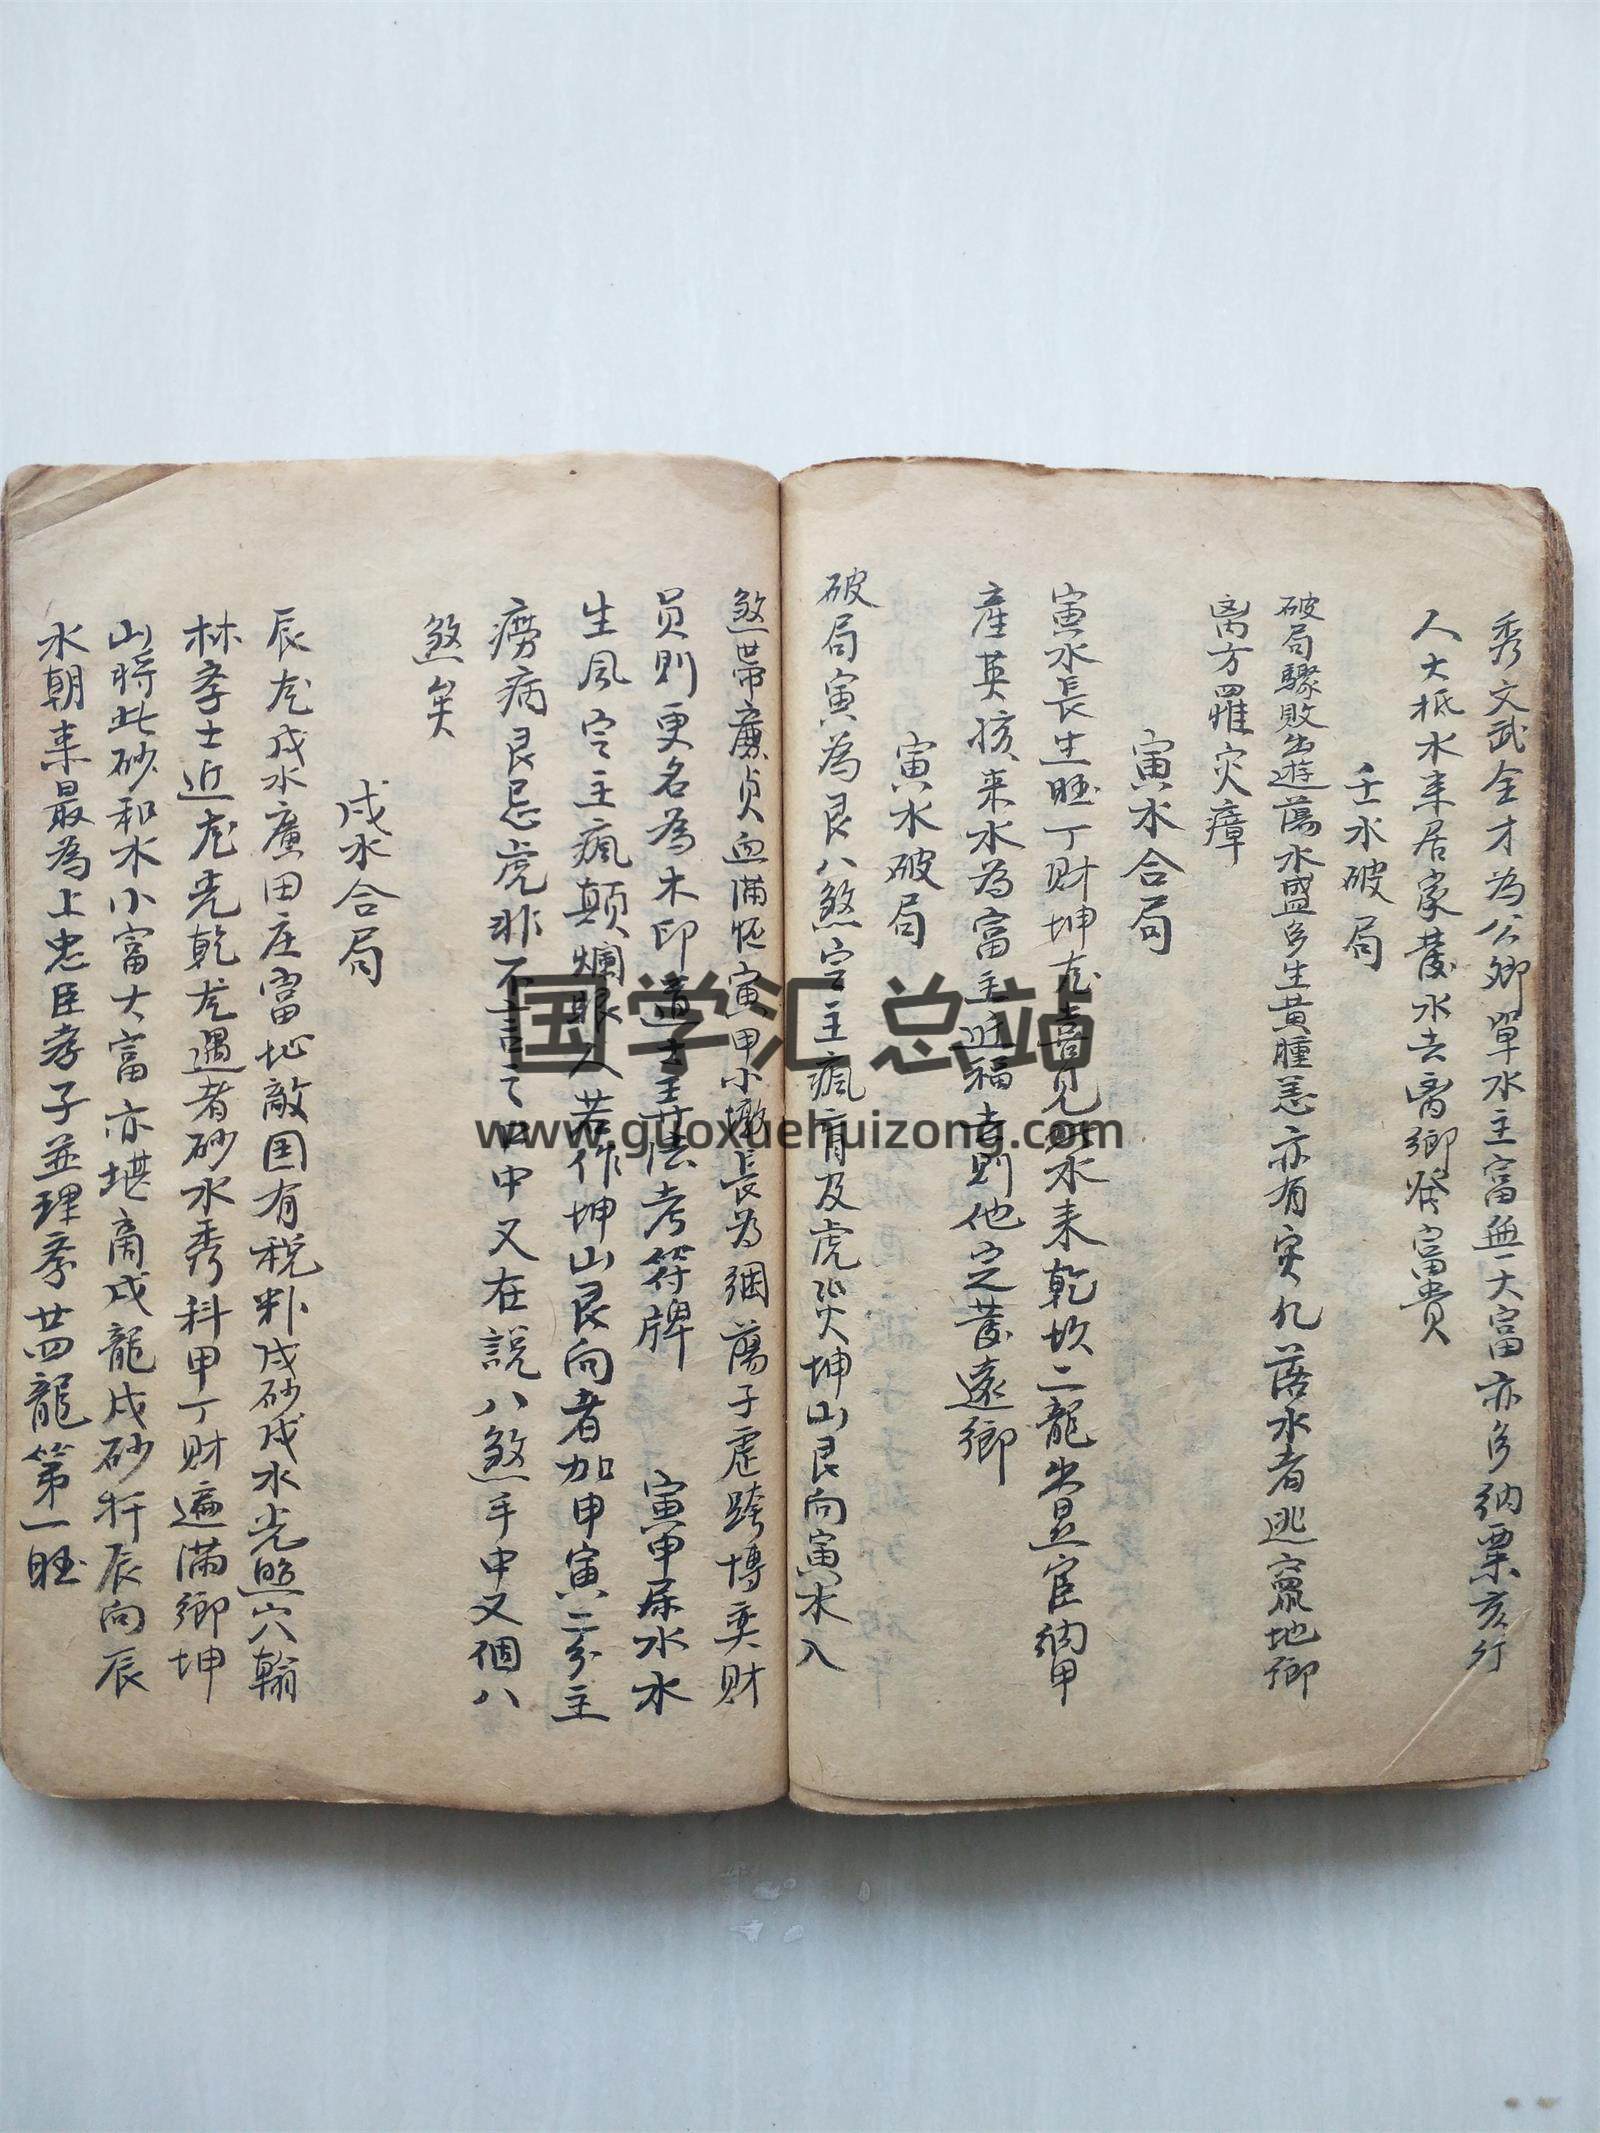 秀文武全才為公卿單水主富無一大富亦多納粟亥行
人大抵水来居家發水去离鄉發富貴
壬水破局
破局驟敗出遊蕩水盛多生黄腫恙亦有灾凡落水者逃竄地鄉
离方罹灾瘴
寅水合局
寅水長生旺丁财坤龙喜見水来乾坎二龍出显宦納甲
産英孩来水為富主近福去則他定發遠鄉
寅水破局
破局寅為艮八煞定主瘋盲及虎災坤山艮向寅水入
煞帶廉貞血满怀寅甲小墩長為蕩子跨博奕财
员則更名為木印道士王法考符牌 寅甲尿水水
生風定主瘋颠爛眼人若作坤山艮向者加申寅二分主
痨病艮忌虎非不言之口中又在説八煞手中又個八
煞矣
戌水合局
辰龙戌水廣田庄富地敵国有税粮戌砂戌水光照穴翰
林孝士近龙光乾龙遇者砂水秀科甲丁财遍满鄉坤
山將此砂和水小富大富亦堪商戌龍戌砂扦辰向辰
水朝来最為上忠臣孝子並理孝廿四龍第一旺
国学汇总站
www.guoxuehuizong.com